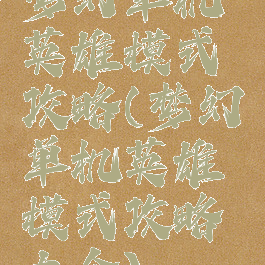 梦幻单机
英雄模式
攻略(梦幻
单机英雄
模式攻略
大全)